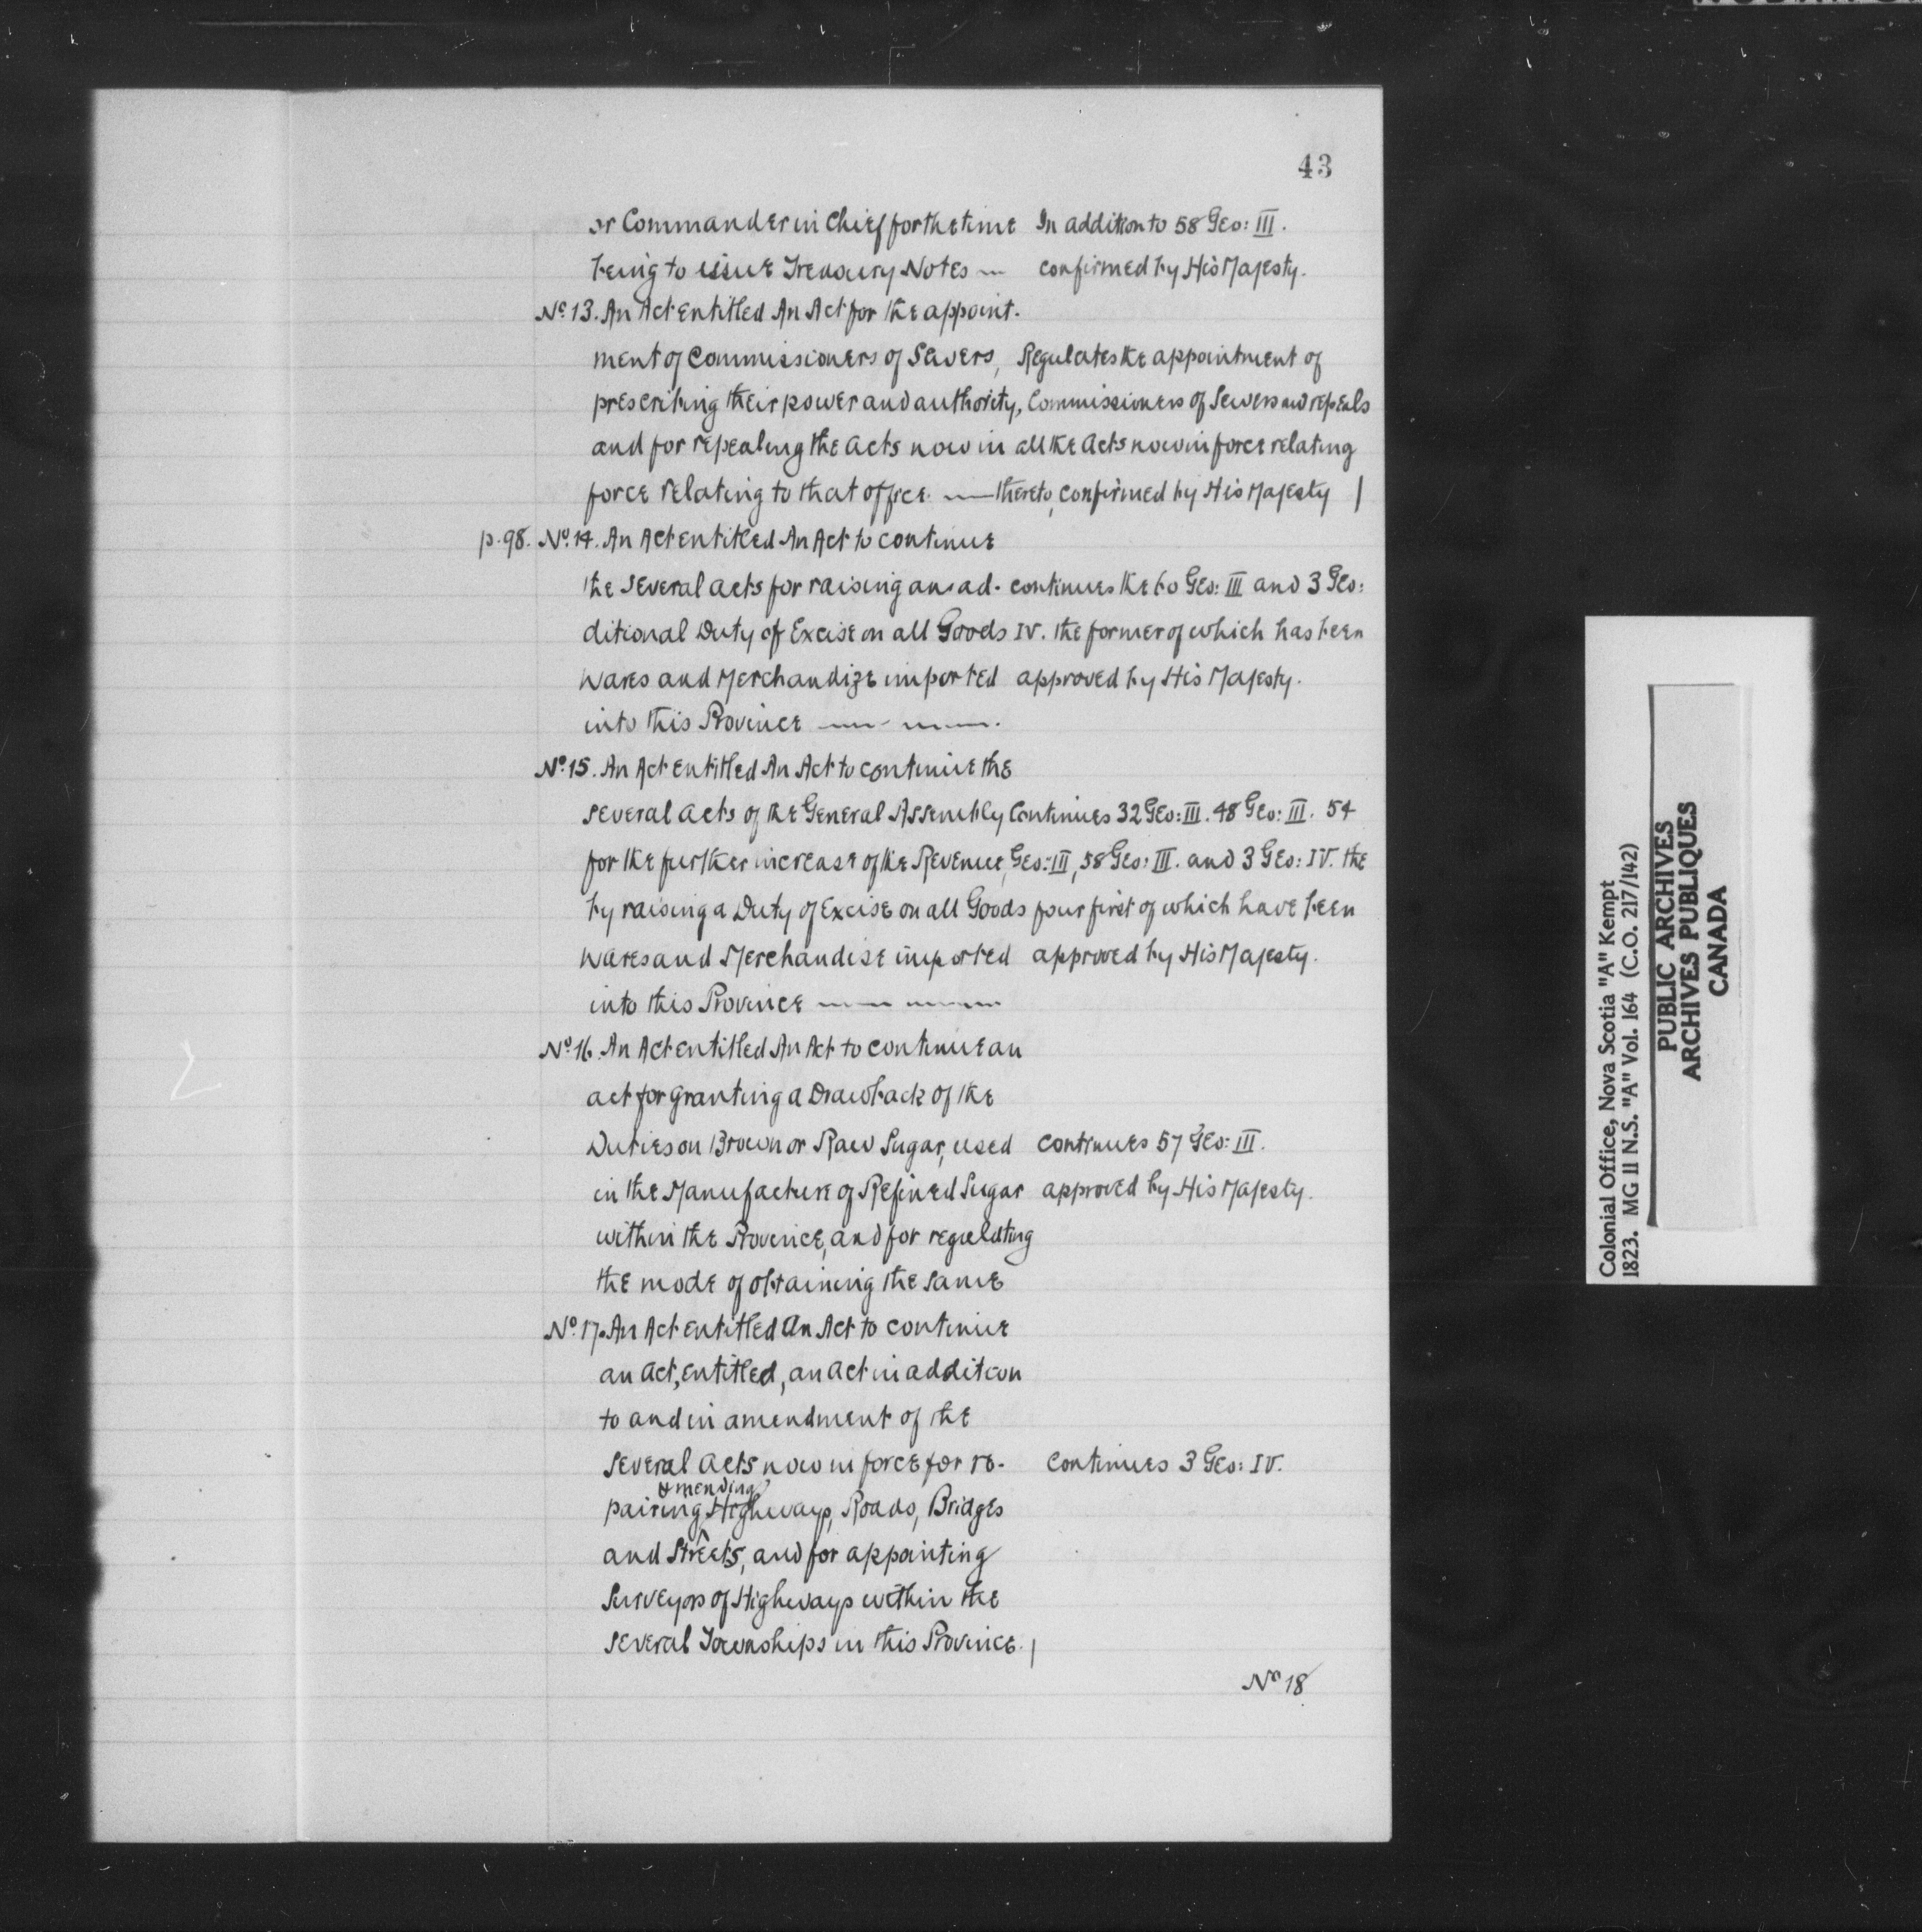 43
or Commander in Chief for the time In addition to 58 Geo: III.
being to issue Treasury Notes — confirmed by His Majesty.
No. 13. An Act entitled An Act for the appoint-
ment of Commissioners of Sewers, Regulates the appointment of
prescribing their power and authority, Commissioners of Sewers and repeals
and for repealing the Acts now in all the Acts now in force relating
force relating to that office. — thereto, confirmed by His Majesty
p. 98. No. 14. An Act entitled An Act to continue
the several acts for raising an ad- continues the 60 Geo: III and 3 Geo:
ditional Duty of Excise on all Goods IV. the former of which has been
Wares and Merchandize imported approved by His Majesty.
into this Province —
No. 15. An Act entitled An Act to continue the
several acts of the General Assembly Continues 32 Geo: III. 48 Geo: III. 54
for the further increase of the Revenue, Geo: III, 58 Geo: III. and 3 Geo: IV. the
by raising a Duty of Excise on all Goods four first of which have been
Wares and Merchandise imported approved by His Majesty.
into this Province —
No. 16. An Act entitled An Act to continue an
act for granting a Drawback of the
Duties on Brown or Raw Sugar, used continues 57 Geo: III.
in the Manufacture of Refined Sugar approved by His Majesty.
within the Province, and for regulating
the mode of obtaining the same
No. 17. An Act entitled An Act to continue
an Act, entitled, an act in addition
to and in amendment of the
several acts now in force for re- Continues 3 Geo: IV.
& mending
pairing Highways, Roads, Bridges
and Streets, and for appointing
Surveyors of Highways within the
several Townships in this Province.
No 18
Colonial Office, Nova Scotia "A" Kempt
1823. MG 11 N.S. "A" Vol. 164 (C.O. 217/142)
PUBLIC ARCHIVES
ARCHIVES PUBLIQUES
CANADA